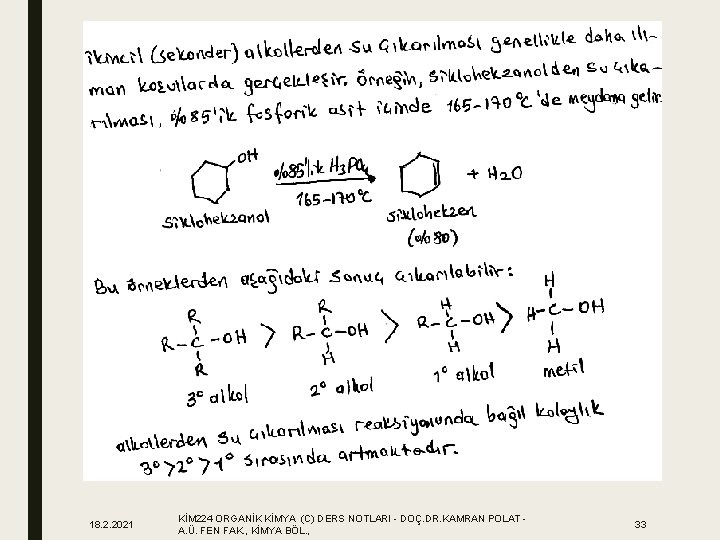 ikincil (sekonder) alkollerden su çıkarılması genellikle daha ılı-
man koşullarda gerçekleşir. Örneğin, siklohekzanolden su çıka-
rılması, %85'lik fosforik asit içinde 165-170°C'de meydana gelir.
OH
%85'lik H3PO4
165-170°C
+ H2O
siklohekzanol
siklohekzen
(%80)
Bu örneklerden aşağıdaki sonuç çıkarılabilir:
R R H H
R-C-OH > R-C-OH > R-C-OH > H-C-OH
R H H H
3° alkol 2° alkol 1° alkol metil
alkollerden su çıkarılması reaksiyonunda bağıl kolaylık
3°>2°>1° sırasında artmaktadır.
18.2.2021
KİM224 ORGANİK KİMYA (C) DERS NOTLARI - DOÇ.DR.KAMRAN POLAT -
A.Ü. FEN FAK., KİMYA BÖL.,
33